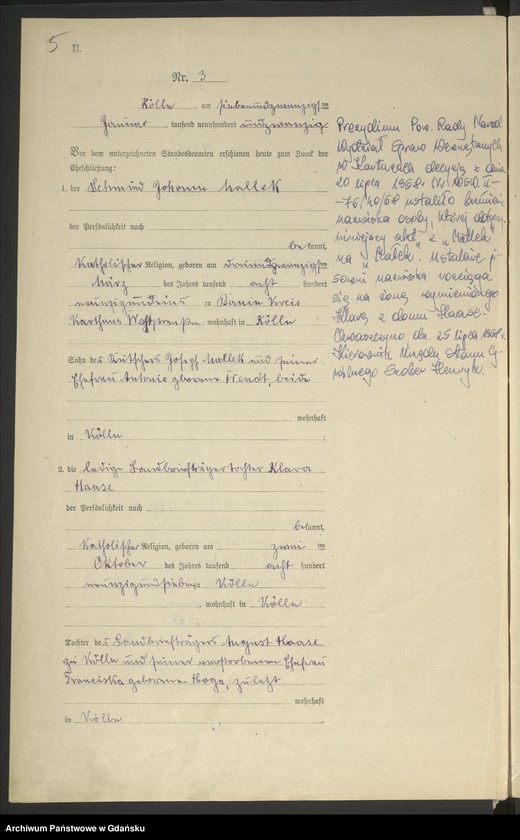 5
B.
Nr. 3
Kölln am siebenundzwanzigsten
Januar tausend neunhundert undzwanzig
Vor dem unterzeichneten Standesbeamten erschienen heute zum Zweck der
Eheschließung:
1. der Schmied Johann Mallek
der Persönlichkeit nach
bekannt,
Katholischer Religion, geboren am dreiundzwanzigsten
März des Jahres tausend acht hundert
neunzigundeins zu Kreis
Karthaus Westpreußen, wohnhaft in Kölln
Sohn des Kutschers Joseph Mallek und seiner
Ehefrau Antonie geborene Wendt, beide
wohnhaft
in Kölln ;
2. die ledige Landbriefträgertochter Klara
Haase
der Persönlichkeit nach
bekannt,
Katholischer Religion, geboren am zwei ten
Oktober des Jahres tausend acht hundert
neunzigundsieben zu Kölln
, wohnhaft in Kölln
Tochter des Landbriefträgers August Haase
zu Kölln und seiner verstorbenen Ehefrau
Franciska geborenen Hoga, zuletzt
wohnhaft
in Kölln
Prezydium Pow. Rady Narod
Wydział Spraw Wewnętrznych
w Kartuzach decyzją z dnia
20 lipca 1968r. Nr
-75/40/68 ustaliło brzmienie
nazwiska osoby, której dotyczy
niniejszy akt z „Mallek"
na „Małek". Ustalenie pi-
sowni nazwiska rozciąga
się na żonę wymienionego
Klarę z domu Haase.
Chwaszczyno, dn. 25 lipca 1968r.
Kierownik Urzędu Stanu Cy-
wilnego Szober Henryk.
Archiwum Państwowe w Gdańsku